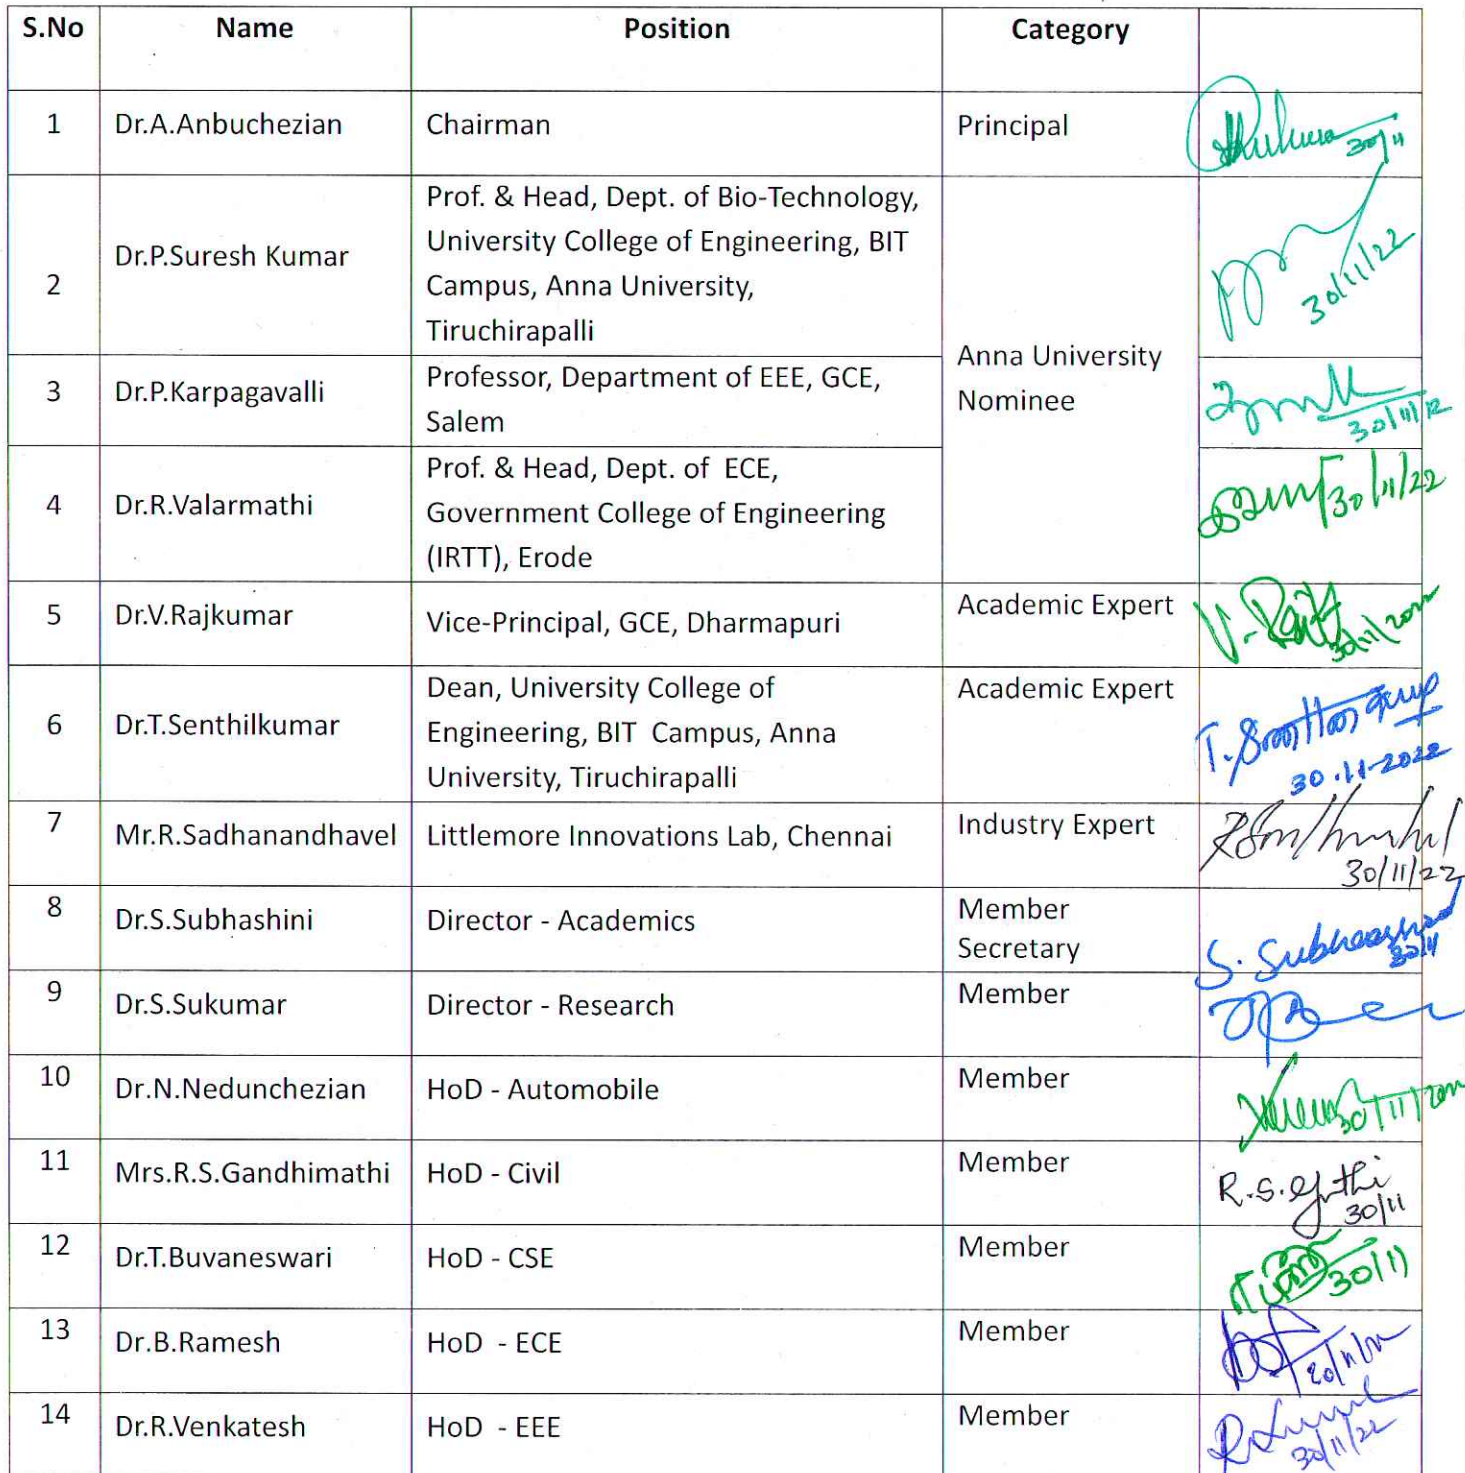 S.No Name Position Category
1 Dr.A.Anbuchezian Chairman Principal
30/11
Prof. & Head, Dept. of Bio-Technology,
University College of Engineering, BIT
Campus, Anna University,
Tiruchirapalli
2 Dr.P.Suresh Kumar
30/11/22
Anna University
Nominee
3 Dr.P.Karpagavalli Professor, Department of EEE, GCE,
Salem
30/11/
4 Dr.R.Valarmathi Prof. & Head, Dept. of ECE,
Government College of Engineering
(IRTT), Erode
30/11/22
5 Dr.V.Rajkumar Vice-Principal, GCE, Dharmapuri Academic Expert
30/11/2022
6 Dr.T.Senthilkumar Dean, University College of
Engineering, BIT Campus, Anna
University, Tiruchirapalli
Academic Expert
30.11-2022
7 Mr.R.Sadhanandhavel Littlemore Innovations Lab, Chennai Industry Expert
30/11/22
8 Dr.S.Subhashini Director - Academics Member
Secretary
S. Subhashini
30/11
9 Dr.S.Sukumar Director - Research Member
10 Dr.N.Nedunchezian HoD - Automobile Member
30/11/2022
11 Mrs.R.S.Gandhimathi HoD - Civil Member
R.S.
30/11
12 Dr.T.Buvaneswari HoD - CSE Member
30/11
13 Dr.B.Ramesh HoD - ECE Member
14 Dr.R.Venkatesh HoD - EEE Member
30/11/22